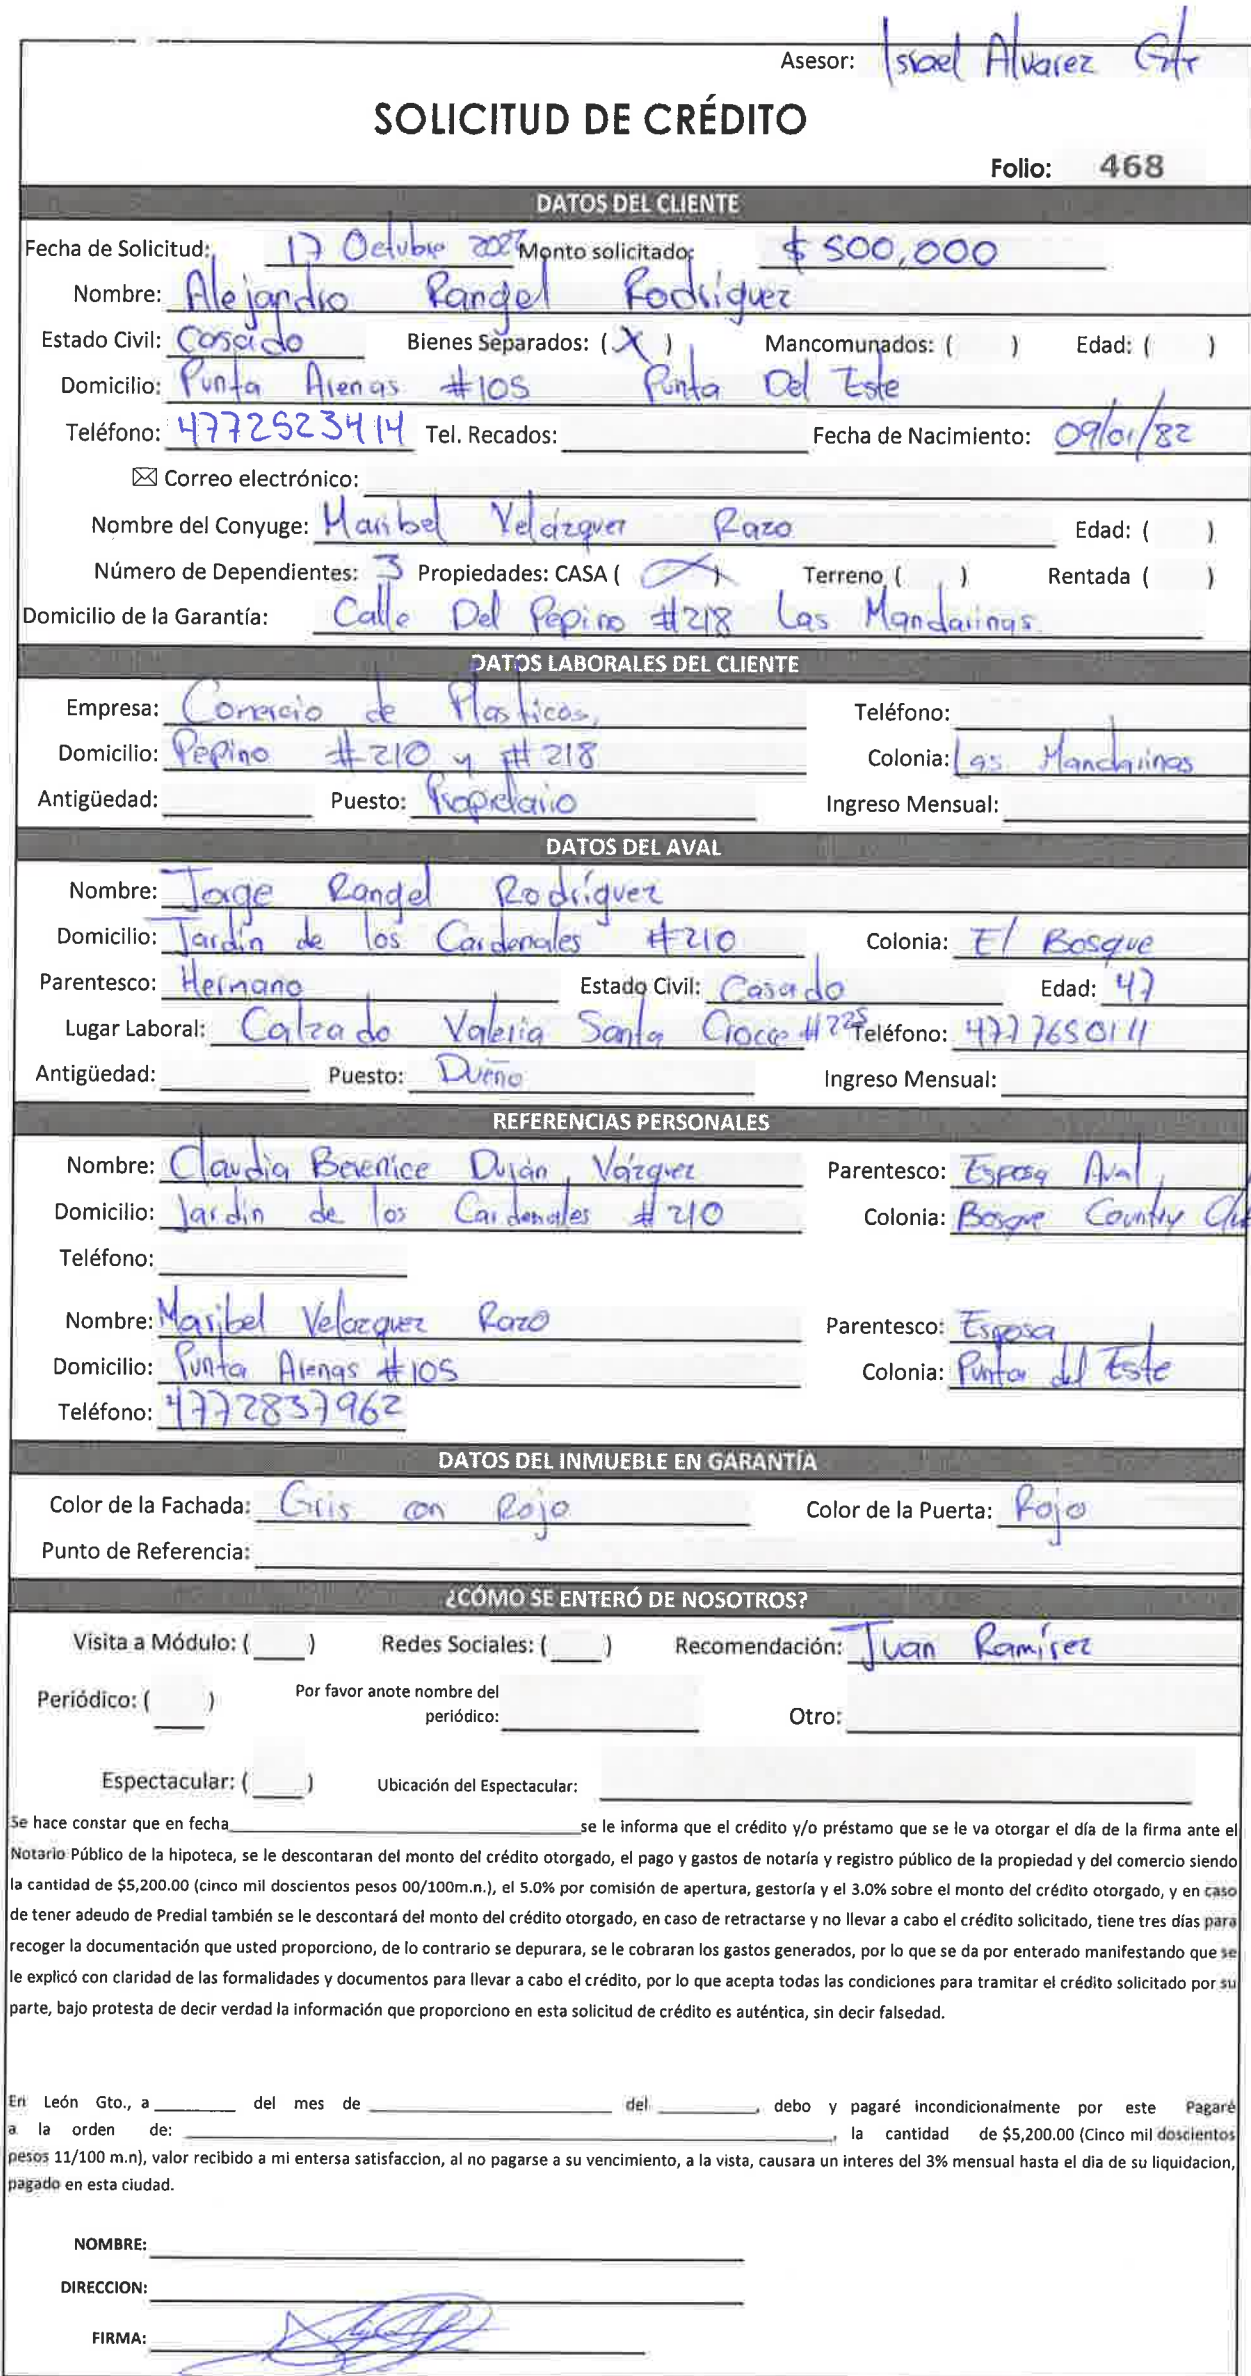 Asesor: Israel Alvarez
SOLICITUD DE CRÉDITO
Folio: 468
DATOS DEL CLIENTE
Fecha de Solicitud: 17 Octubre Monto solicitado: $ 500,000
Nombre: Alejandro Rangel Rodríguez
Estado Civil: Casado Bienes Separados: ( X ) Mancomunados: ( ) Edad: ( )
Domicilio: Punta Arenas #105 Punta Del Este
Teléfono: 4772523414 Tel. Recados: Fecha de Nacimiento: 09/01/82
Correo electrónico:
Nombre del Conyuge: Maribel Velázquez Razo Edad: ( )
Número de Dependientes: 3 Propiedades: CASA ( X ) Terreno ( ) Rentada ( )
Domicilio de la Garantía: Calle Del Pepino #218 Las Mandarinas
DATOS LABORALES DEL CLIENTE
Empresa: Comercio de Plasticos, Teléfono:
Domicilio: Pepino #210 y #218 Colonia: Las Mandarinas
Antigüedad: Puesto: Propietario Ingreso Mensual:
DATOS DEL AVAL
Nombre: Jorge Rangel Rodríguez
Domicilio: Jardín de los Cardenales #210 Colonia: El Bosque
Parentesco: Hermano Estado Civil: Casado Edad: 47
Lugar Laboral: Calzado Valeria Santa Croce #225 Teléfono: 4777650111
Antigüedad: Puesto: Dueño Ingreso Mensual:
REFERENCIAS PERSONALES
Nombre: Claudia Berenice Durán Vázquez Parentesco: Esposa Aval
Domicilio: Jardin de los Cardenales #210 Colonia: Bosque Country Club
Teléfono:
Nombre: Maribel Velazquez Razo Parentesco: Esposa
Domicilio: Punta Arenas #105 Colonia: Punta del Este
Teléfono: 4772837962
DATOS DEL INMUEBLE EN GARANTÍA
Color de la Fachada: Gris con Rojo Color de la Puerta: Rojo
Punto de Referencia:
¿CÓMO SE ENTERÓ DE NOSOTROS?
Visita a Módulo: ( ) Redes Sociales: ( ) Recomendación: Juan Ramírez
Periódico: ( ) Por favor anote nombre del periódico: Otro:
Espectacular: ( ) Ubicación del Espectacular:
Se hace constar que en fecha se le informa que el crédito y/o préstamo que se le va otorgar el día de la firma ante el
Notario Público de la hipoteca, se le descontaran del monto del crédito otorgado, el pago y gastos de notaría y registro público de la propiedad y del comercio siendo
la cantidad de $5,200.00 (cinco mil doscientos pesos 00/100m.n.), el 5.0% por comisión de apertura, gestoría y el 3.0% sobre el monto del crédito otorgado, y en caso
de tener adeudo de Predial también se le descontará del monto del crédito otorgado, en caso de retractarse y no llevar a cabo el crédito solicitado, tiene tres días para
recoger la documentación que usted proporciono, de lo contrario se depurara, se le cobraran los gastos generados, por lo que se da por enterado manifestando que se
le explicó con claridad de las formalidades y documentos para llevar a cabo el crédito, por lo que acepta todas las condiciones para tramitar el crédito solicitado por su
parte, bajo protesta de decir verdad la información que proporciono en esta solicitud de crédito es auténtica, sin decir falsedad.
En León Gto., a del mes de del , debo y pagaré incondicionalmente por este Pagaré
a la orden de: , la cantidad de $5,200.00 (Cinco mil doscientos
pesos 11/100 m.n), valor recibido a mi entersa satisfaccion, al no pagarse a su vencimiento, a la vista, causara un interes del 3% mensual hasta el dia de su liquidacion,
pagado en esta ciudad.
NOMBRE:
DIRECCION:
FIRMA: